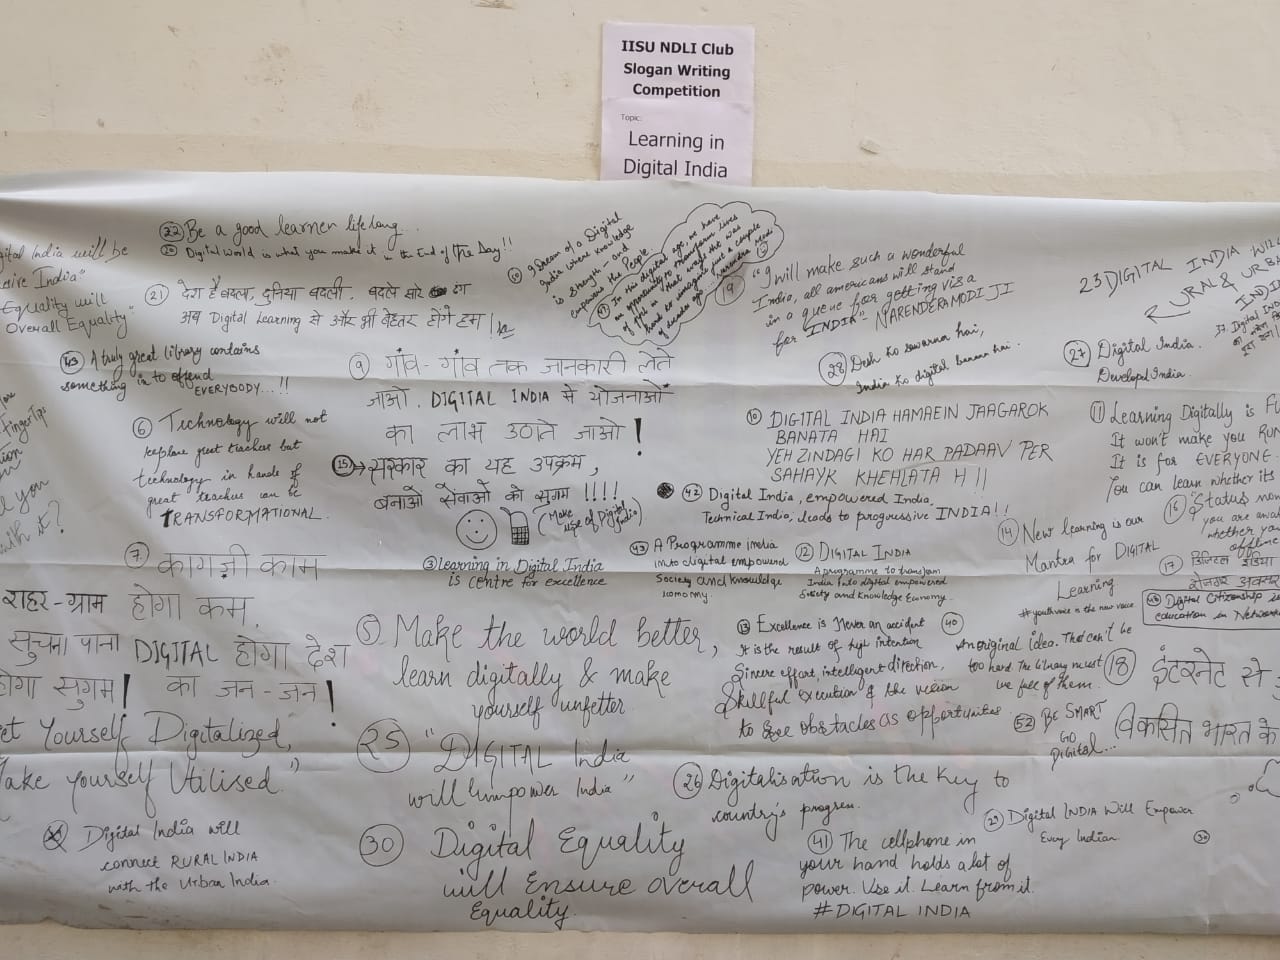 IISU NDLI Club
Slogan Writing
Competition
Topic:
Learning in
Digital India
22 Be a good learner life long...
20 Digital World is what you make it in the End of the Day!!
Digital India will be
India"
Equality will
Overall Equality"
21 देश है बदला, दुनिया बदली, बदले सारे रंग
अब Digital Learning से और भी बेहतर होंगे हम
I Dream of a Digital
India where knowledge
is strength - and
empowers the People.
In this digital age, we have
an opportunity to transform lives
of ppl in that ways that was
hard to imagine just a couple
of decades ago
Narendra Modi
19
"I will make such a wonderful
India, all americans will stand
in a queue for getting visa
for INDIA" - NARENDERA MODI JI
23 DIGITAL INDIA
RURAL & URBAN
28 Desh ko sawarna hai,
India ko digital banana hai.
27 Digital India.
Developed India.
37. Digital
A truly great library contains
something in to offend
EVERYBODY...!!
6 Technology will not
replace great teachers but
technology in hands of
great teachers can be
TRANSFORMATIONAL
9 गांव-गांव तक जानकारी लेते
जाओ. DIGITAL INDIA से योजनाओं
का लाभ उठाते जाओ!
15 → सरकार का यह उपक्रम,
बनाओ सेवाओं को सुगम !!!!
(Make use of Digital India)
10 DIGITAL INDIA HAMAEIN JAAGAROK
BANATA HAI
YEH ZINDAGI KO HAR PADAAV PER
SAHAYK KHEHLATA H ||
11 Learning Digitally is
It won't make you
It is for EVERYONE
You can learn whether its
42 Digital India, empowered India,
Technical India, leads to progressive INDIA!!
16 Status
you are
whether you
offline
14 New learning is our
Mantra for DIGITAL
Learning
#youthvoice is the new voice
7 कागज़ी काम
शहर-ग्राम होगा कम,
सुचना पाना DIGITAL होगा देश
होगा सुगम! का जन-जन!
3 Learning in Digital India
is centre for excellence
43 A Programme
into digital empowered
Society and Knowledge
Economy.
12 DIGITAL INDIA
A programme to transform
India Into digital empowered
Society and Knowledge Economy.
17 डिजिटल इंडिया
रोजगार अवसर
Digital Citizenship is
education in
5 Make the world better,
learn digitally & make
yourself unfetter.
13 Excellence is Never an accident
It is the result of high intention
Sincere effort, intelligent direction,
Skillful execution & the vision
to see obstacles as opportunities
40
An original idea. That can't be
too hard. The library must
be full of them.
18 इंटरनेट से
विकसित भारत के
52 BE SMART
GO
DIGITAL...
Get Yourself Digitalized,
Make yourself Utilised."
25 "DIGITAL India
will Empower India"
26 Digitalisation is the key to
country's progress.
29 Digital INDIA Will Empower
Every Indian
Digital India will
connect RURAL INDIA
with the Urban India.
30 Digital Equality
will Ensure overall
Equality.
41 The cellphone in
your hand holds a lot of
power. Use it. Learn from it.
#DIGITAL INDIA